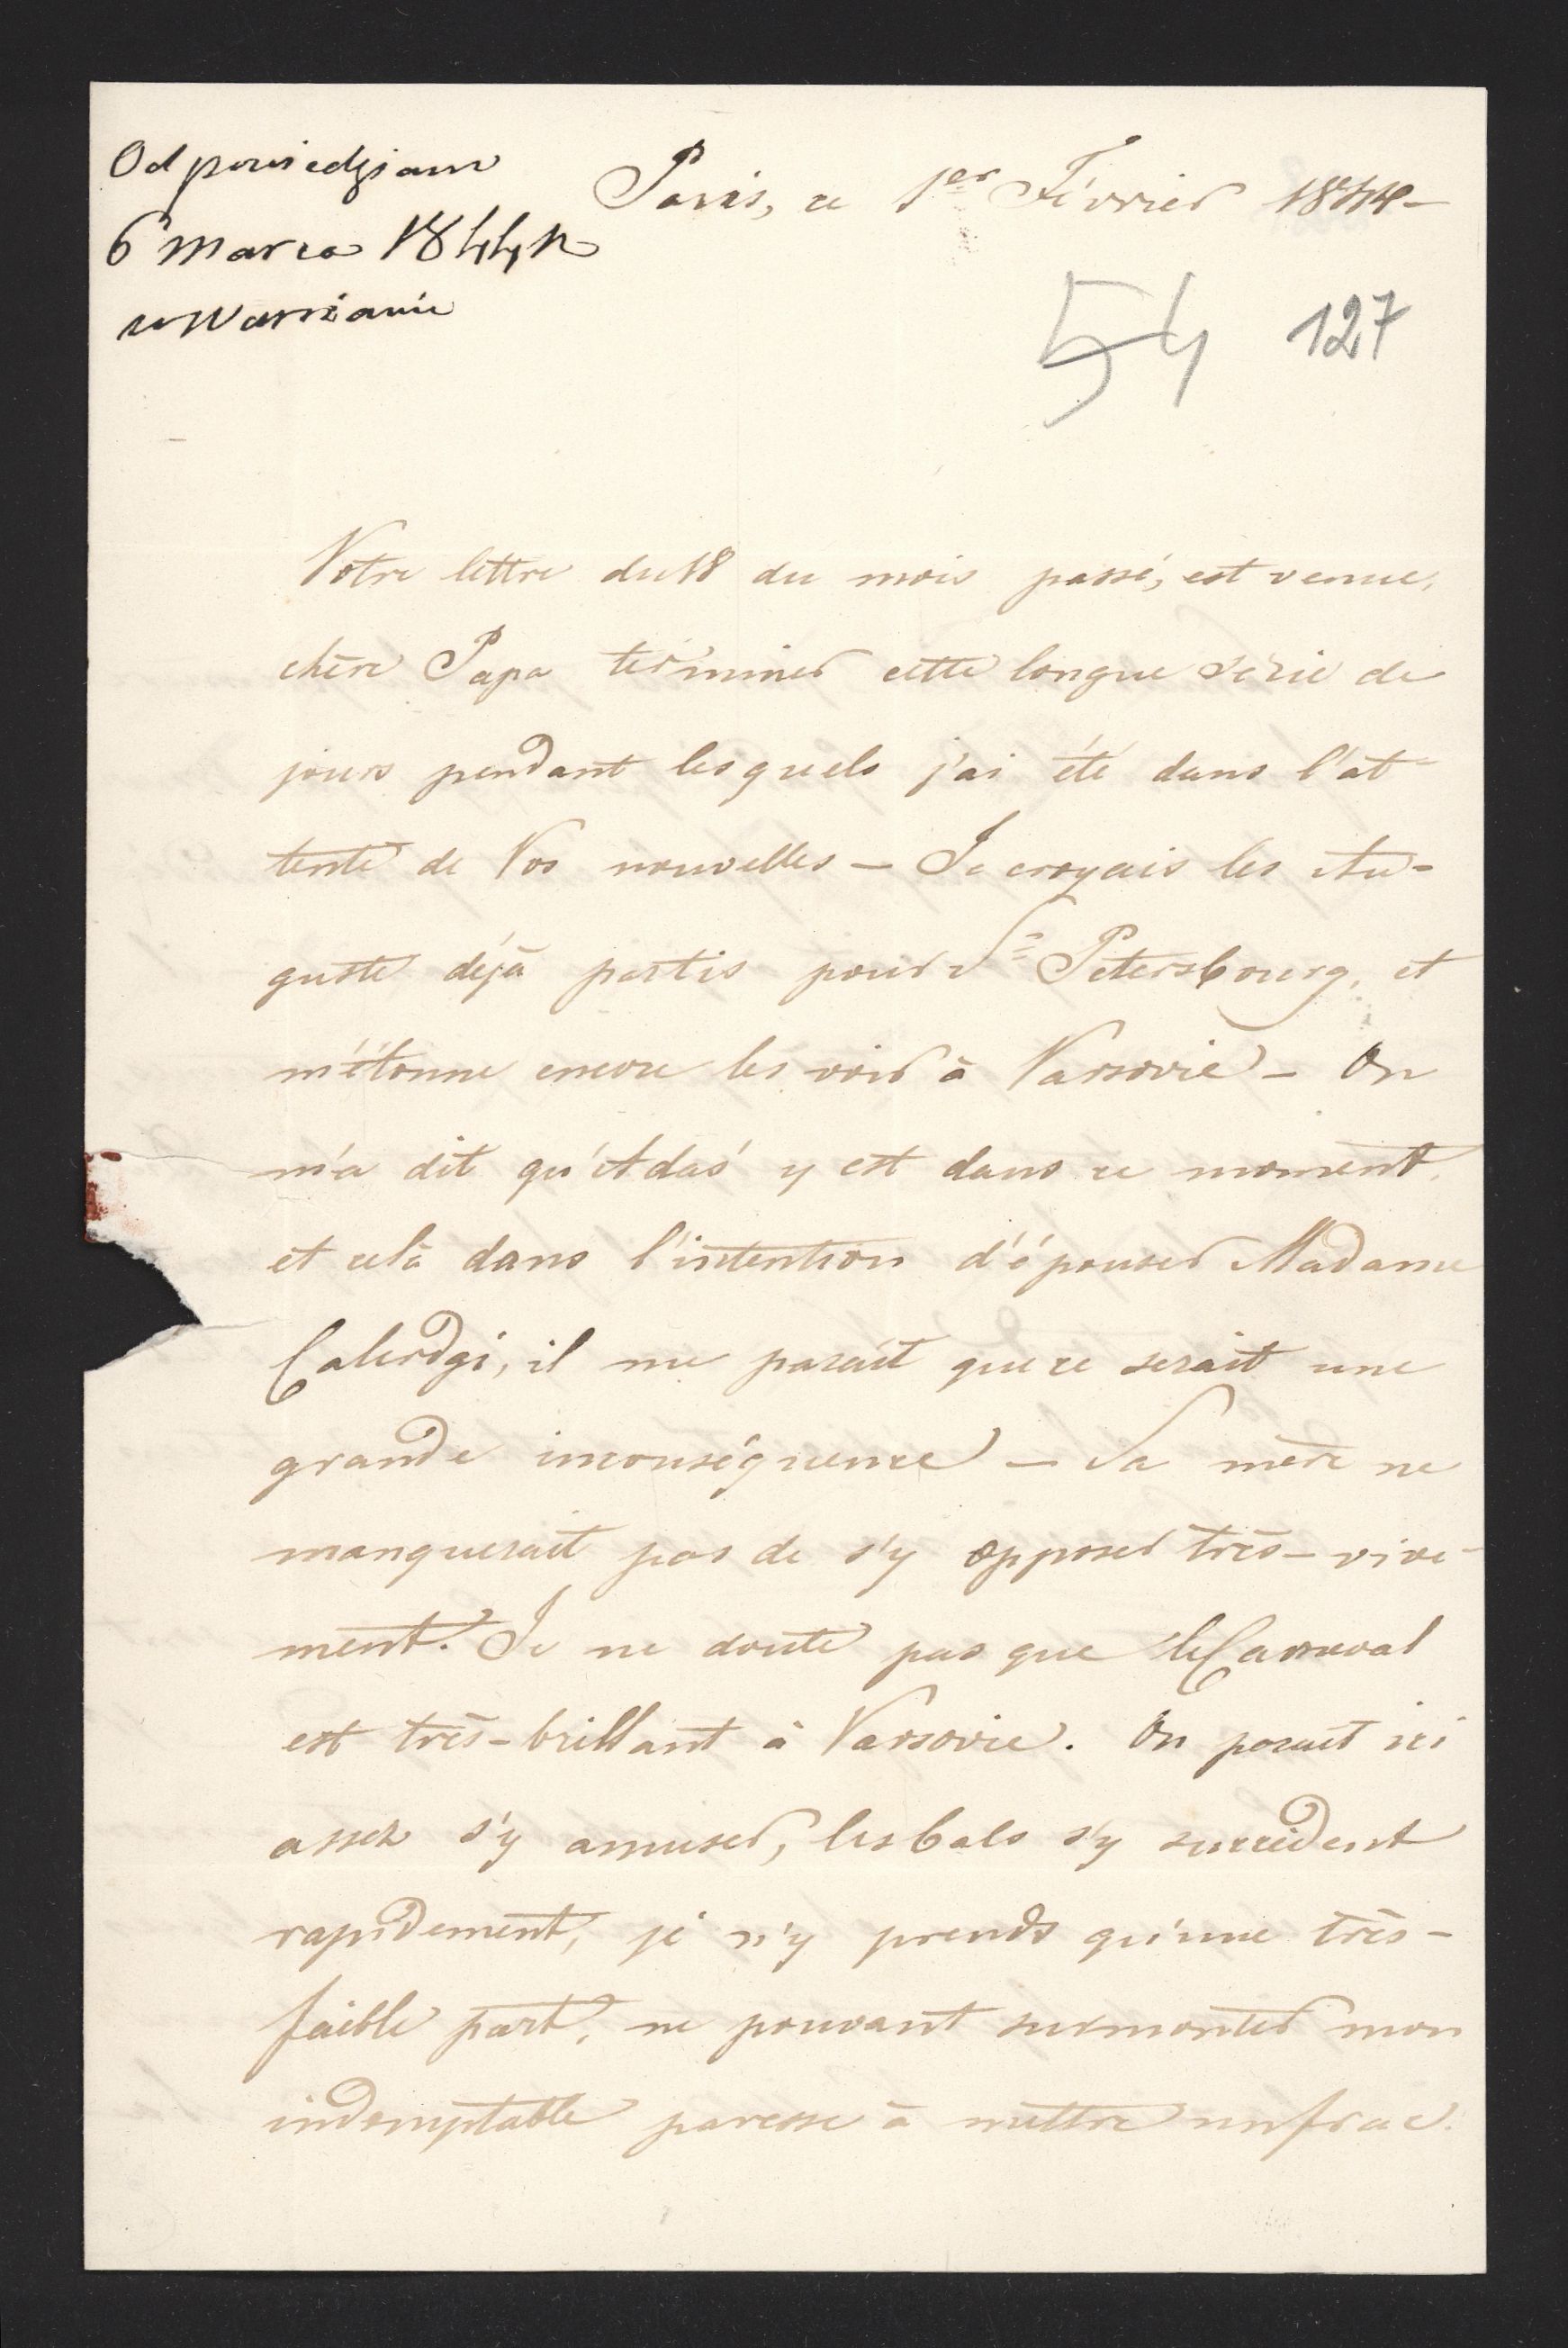 Odpowiedziano
6 marca 1844 r
w Warszawie
Paris, ce 1er Février 1844 –
54 127
Votre lettre du 18 du mois passé, est venue,
chère Papa terminer cette longue série de
jours pendant lesquels j'ai été dans l'at-
tente de Vos nouvelles – Je croyais les Au-
guste déjà partis pour St Petersbourg, et
m'étonne encore les voir à Varsovie – On
m'a dit qu'Adaś y est dans ce moment,
et celà dans l'intention d'épouser Madame
Calerdgi, il me parait que ce serait une
grande inconséquence – Sa mère ne
manquerait pas de s'y opposer très-vive-
ment. Je ne doute pas que le Carneval
est très-brillant à Varsovie. On parait ici
assez s'y amuser, les bals s'y succèdent
rapidement, je n'y prends qu'une très-
faible part, ne pouvant surmonter mon
indomptable paresse à mettre un frac.